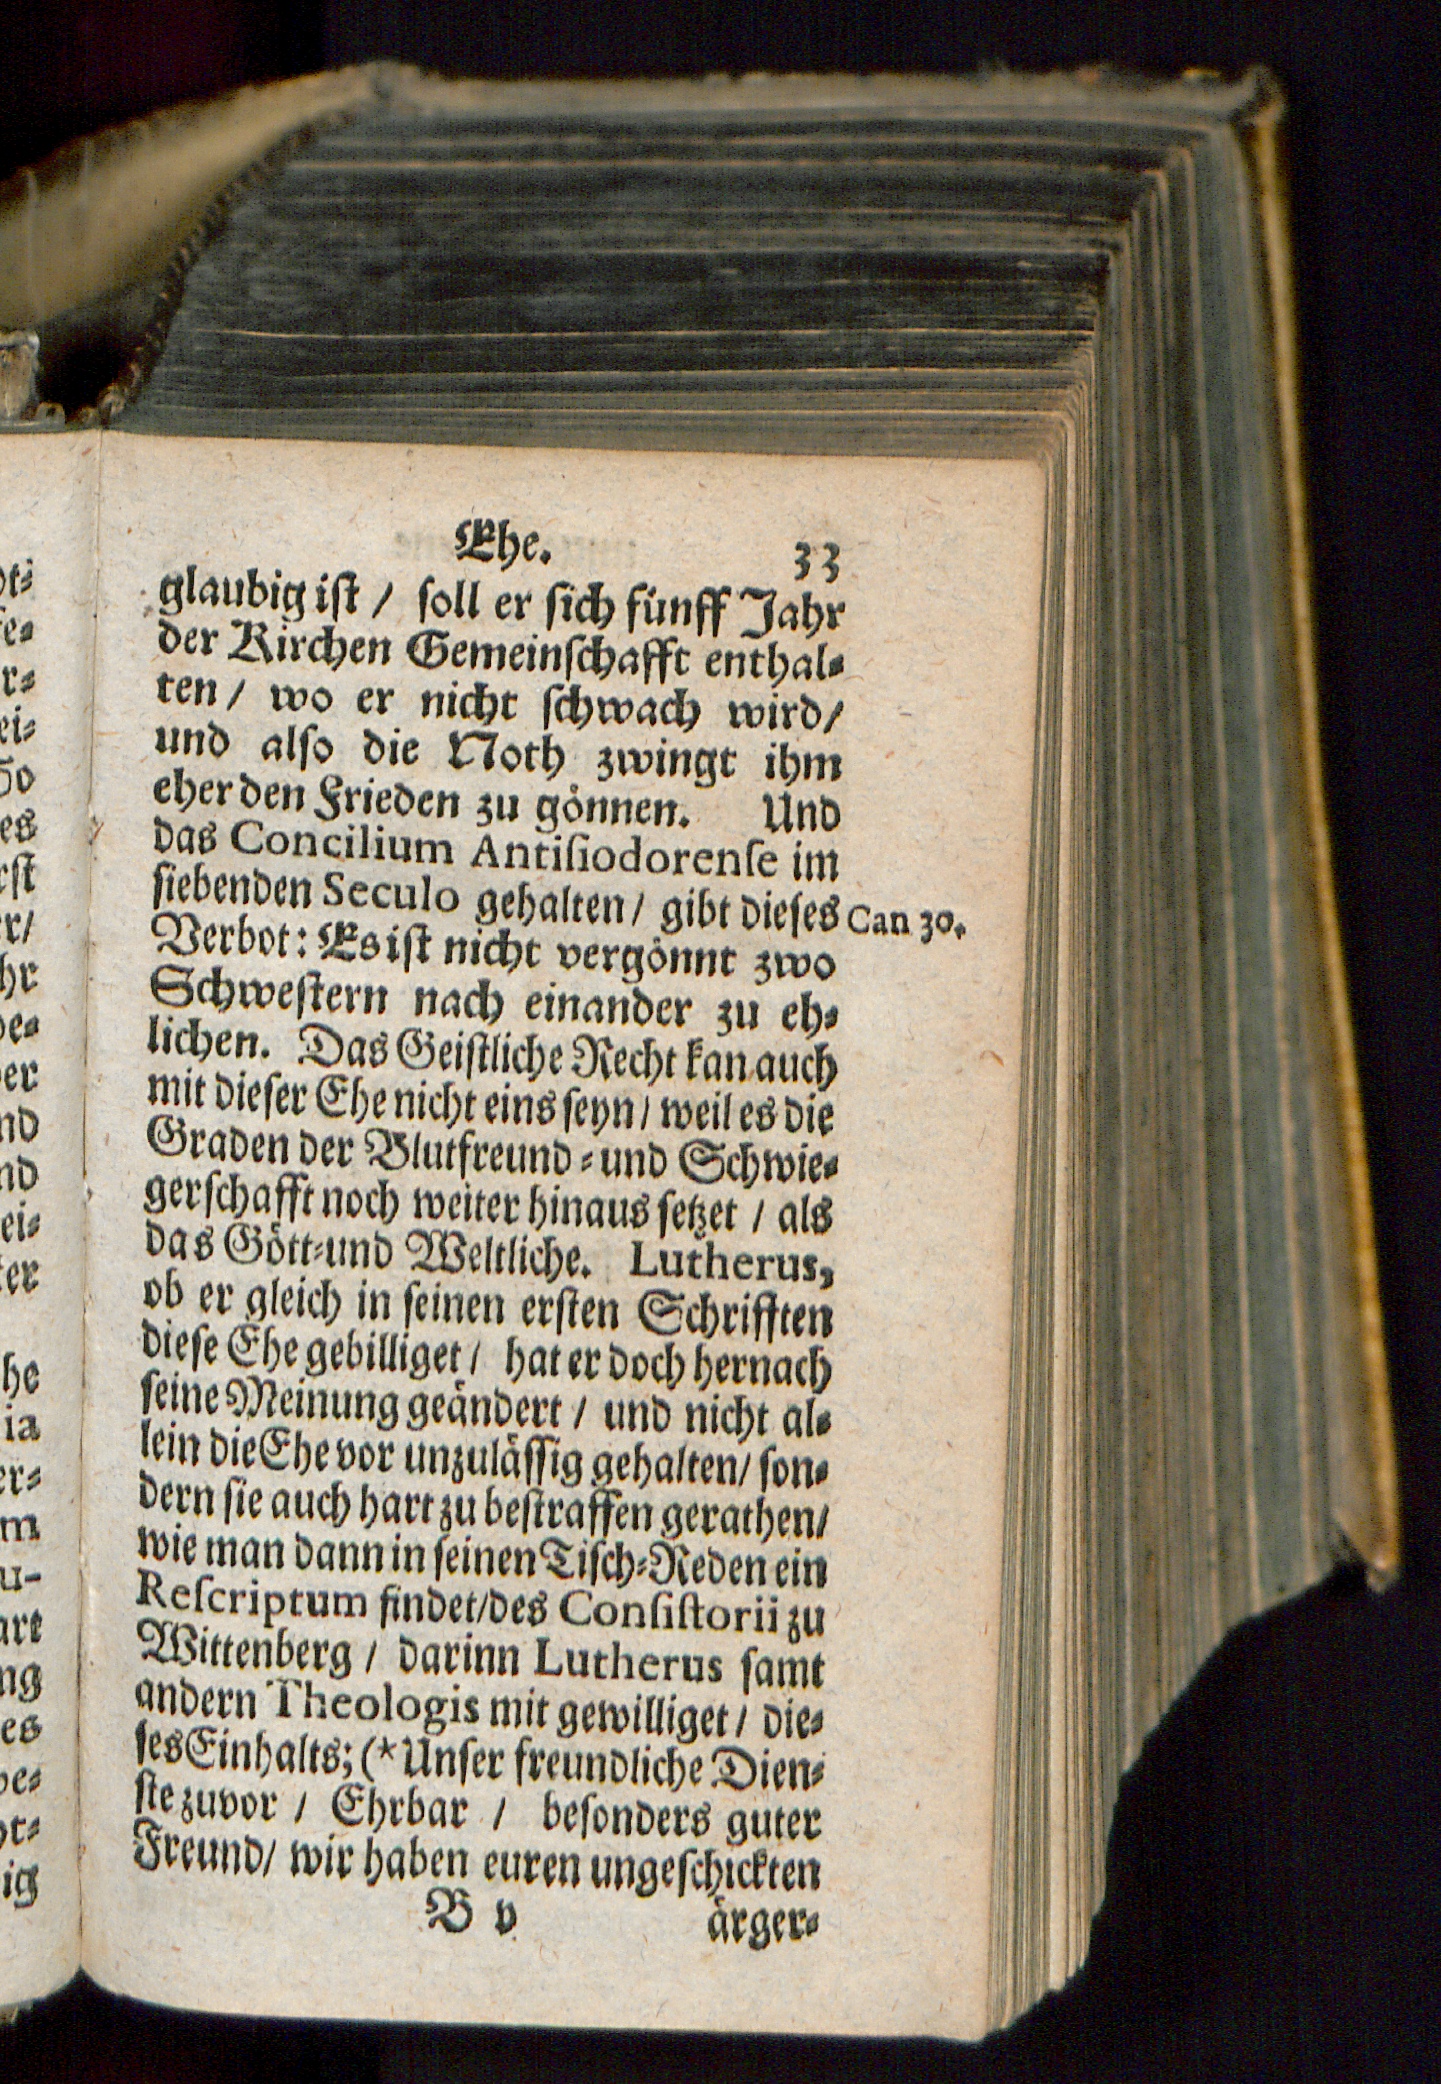 Ehe. 33
glaubig ist / soll er sich fünff Jahr
der Kirchen Gemeinschafft enthal-
ten / wo er nicht schwach wird/
und also die Noth zwingt ihm
eher den Frieden zu gönnen. Und
das Concilium Antisiodorense im
siebenden Seculo gehalten / gibt dieses Can 30.
Verbot: Es ist nicht vergönnt zwo
Schwestern nach einander zu eh-
lichen. Das Geistliche Recht kan auch
mit dieser Ehe nicht eins seyn / weil es die
Graden der Blutfreund- und Schwie-
gerschafft noch weiter hinaus setzet / als
das Gött- und Weltliche. Lutherus,
ob er gleich in seinen ersten Schrifften
diese Ehe gebilliget / hat er doch hernach
seine Meinung geändert / und nicht al-
lein die Ehe vor unzulässig gehalten / son-
dern sie auch hart zu bestraffen gerathen/
wie man dann in seinen Tisch-Reden ein
Rescriptum findet/des Consistorii zu
Wittenberg / darinn Lutherus samt
andern Theologis mit gewilliget / die-
ses Einhalts; (*Unser freundliche Dien-
ste zuvor / Ehrbar / besonders guter
Freund/ wir haben euren ungeschickten
B v ärger-